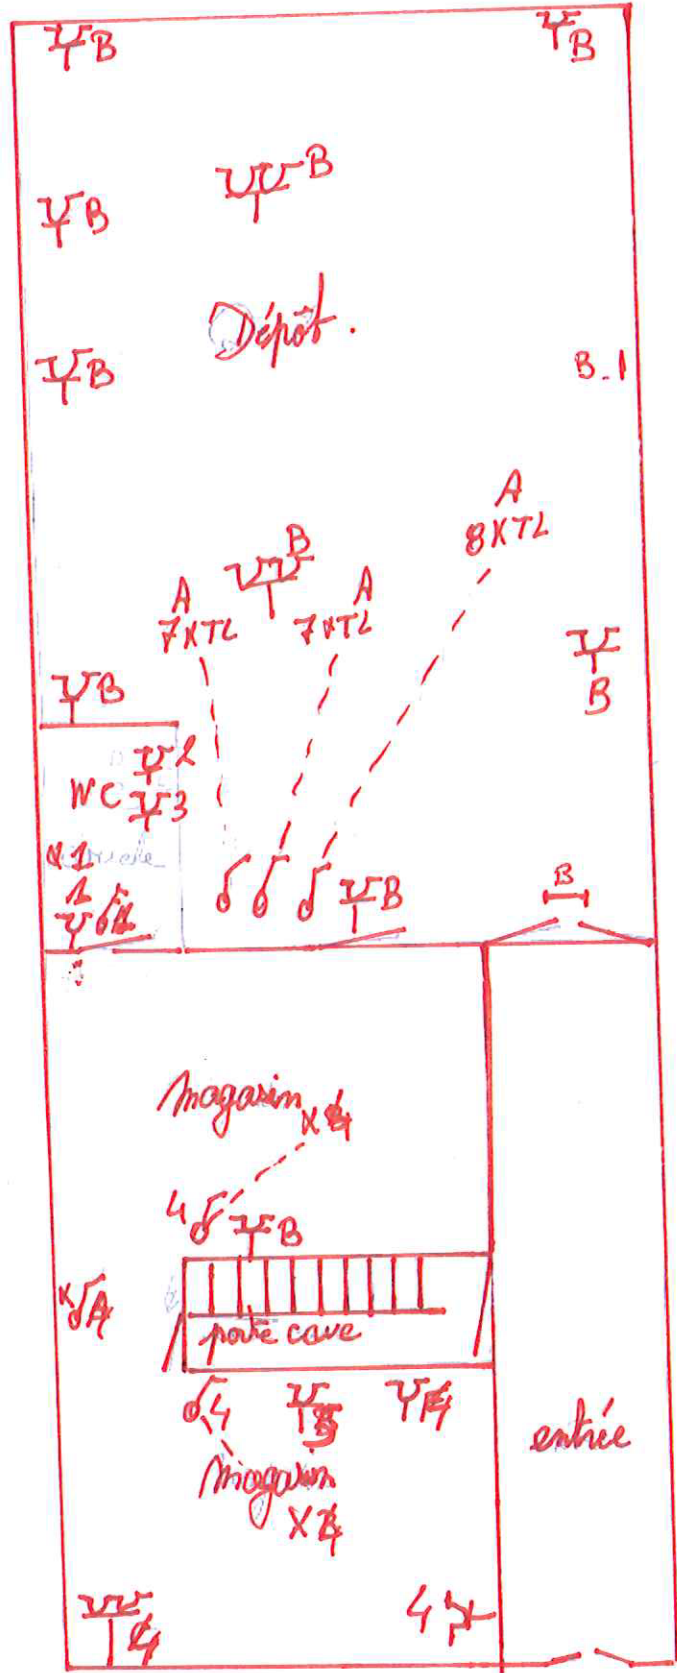 B
B
B
B
Dépôt.
B
B-1
A
8XTL
B
A
7XTL
A
7XTL
B
B
2
WC
3
1
1
B
B
Magasin
X
4
B
porte cave
4
entrée
Magasin
X
4
4